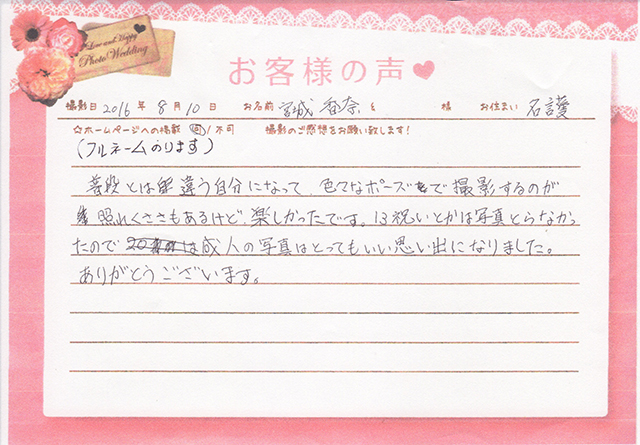 Love and Happy
Photo Wedding
お客様の声
撮影日 2016 年 8 月 10 日 お名前 宮城 香奈 様 お住まい 名護
☆ホームページへの掲載 可 / 不可 撮影のご感想をお願い致します!
(フルネームのります)
普段とは違う自分になって、色々なポーズで撮影するのが
照れくささもあるけど、楽しかったです。13祝いとかは写真とらなかっ
たので 成人の写真はとってもいい思い出になりました。
ありがとうございます。